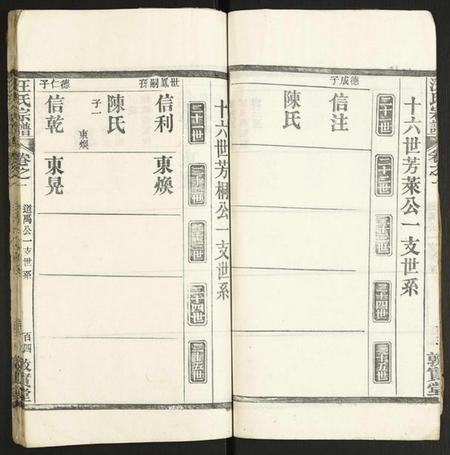 十六世芳萊公一支世系
二十一世
二十二世
二十三世
二十四世
二十五世
德成子
信注
陳氏
敦實堂
十六世芳桐公一支世系
二十一世
二十二世
二十三世
二十四世
二十五世
世鳳嗣孫
信利
東煥
陳氏
子一
東煥
德仁子
信乾
東晃
汪氏宗譜
卷之一
道禹公一支世系
百四
敦實堂